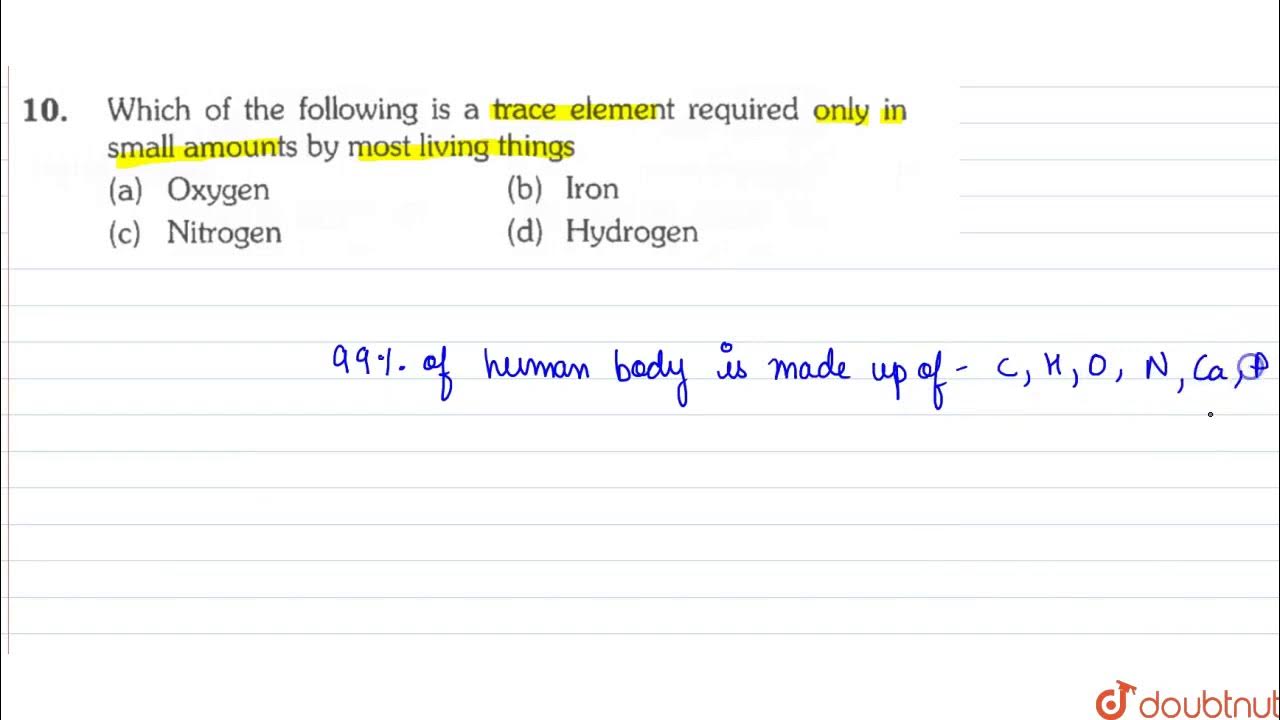 10. Which of the following is a trace element required only in
small amounts by most living things
(a) Oxygen (b) Iron
(c) Nitrogen (d) Hydrogen
99% of human body is made up of - C, H, O, N, Ca, P
doubtnut